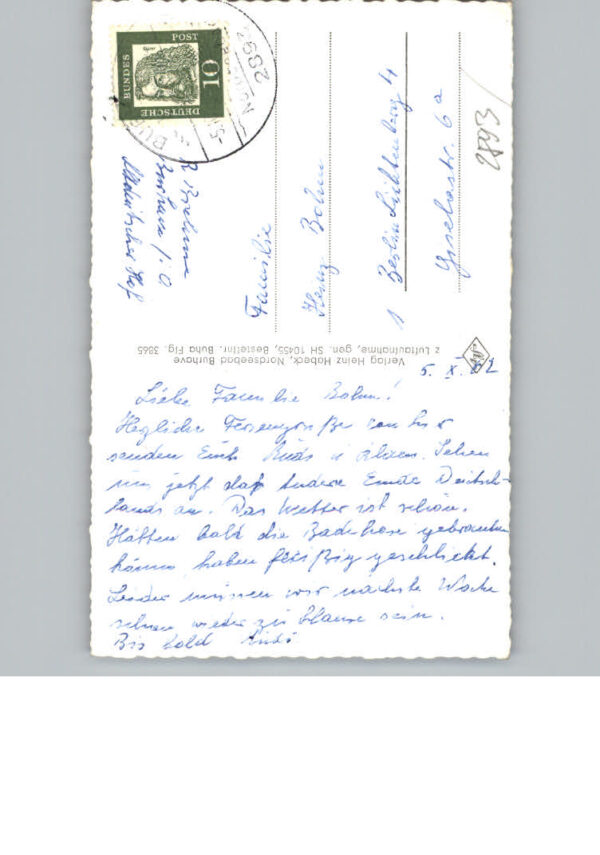 5. X. 62
Liebe Familie Bohm!
Herzliche Feriengrüße von hier
senden Euch Rudi u. Klaus. Sehen
uns jetzt das andere Ende Deutsch-
lands an. Das Wetter ist schön.
Hätten bald die Badehose gebrauchen
können haben fleißig geschickt.
Leider müssen wir nächste Woche
schon wieder zu Hause sein.
Bis bald Rudi
Verlag Heinz Habeck, Nordseebad Burhave
z Luftaufnahme, gen. SH 10455, Bestellnr. Buha Flg. 3865
Familie
Heinz Bohm
1 Berlin Lichtenberg 4
Giselastr. 6a
2893
Burhave i. O
Hof
DEUTSCHE
BUNDES
POST
10
2892